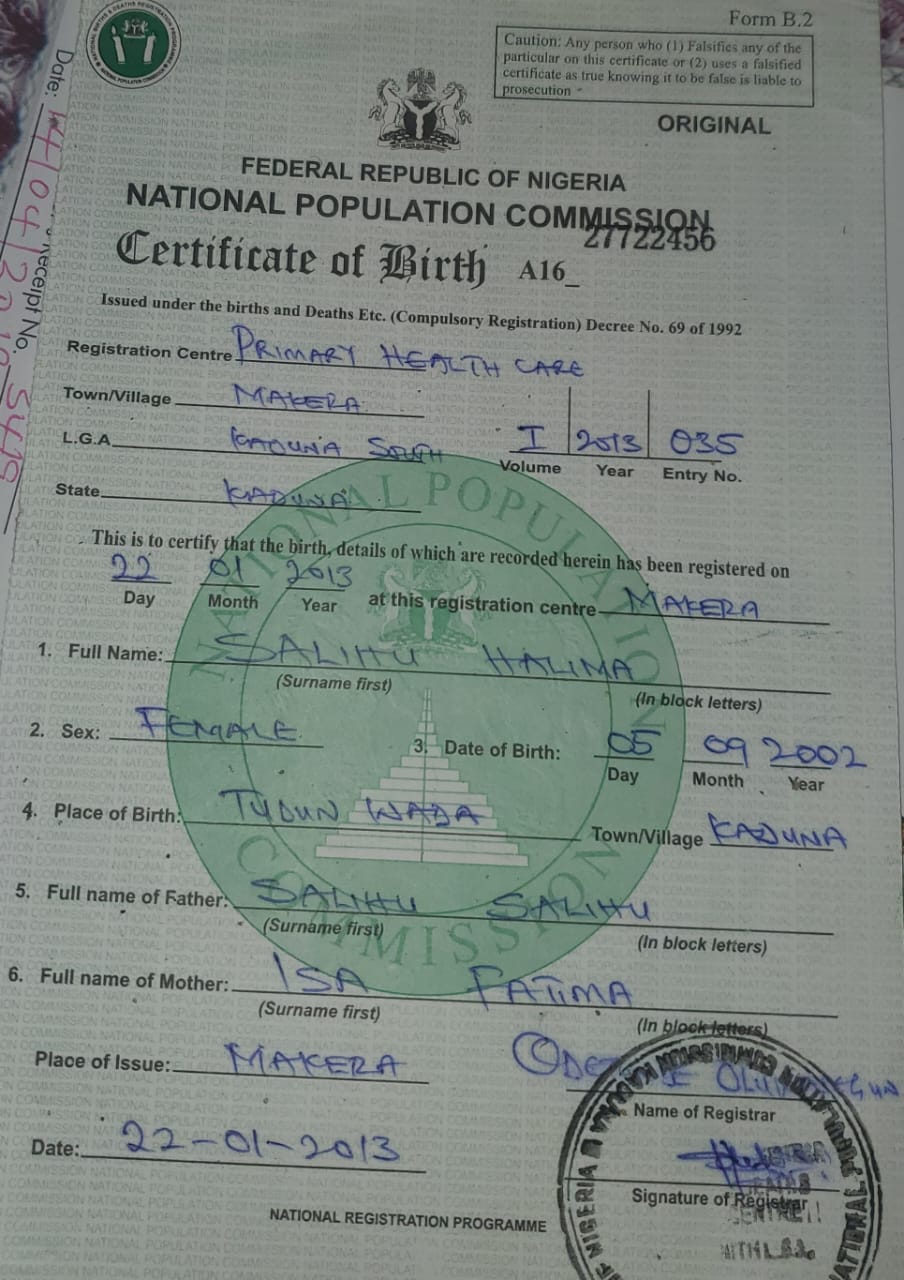 Form B.2
Caution: Any person who (1) Falsifies any of the
particular on this certificate or (2) uses a falsified
certificate as true knowing it to be false is liable to
prosecution -
ORIGINAL
FEDERAL REPUBLIC OF NIGERIA
NATIONAL POPULATION COMMISSION
27722456
Certificate of Birth A16_
Issued under the births and Deaths Etc. (Compulsory Registration) Decree No. 69 of 1992
Registration Centre PRIMARY HEALTH CARE
Town/Village MAKERA
L.G.A KADUNA SOUTH
I 2013 035
Volume Year Entry No.
State KADUNA
This is to certify that the birth, details of which are recorded herein has been registered on
22 01 2013
Day Month Year at this registration centre MAKERA
1. Full Name: SALIHU HALIMA
(Surname first) (In block letters)
2. Sex: FEMALE
3. Date of Birth: 05 09 2002
Day Month Year
4. Place of Birth: TUDUN WADA Town/Village KADUNA
5. Full name of Father: SALIHU SALIHU
(Surname first) (In block letters)
6. Full name of Mother: ISA FATIMA
(Surname first) (In block letters)
Place of Issue: MAKERA
Name of Registrar
Date: 22-01-2013
Signature of Registrar
NATIONAL REGISTRATION PROGRAMME
NATIONAL POPULATION COMMISSION
Date:
Receipt No.